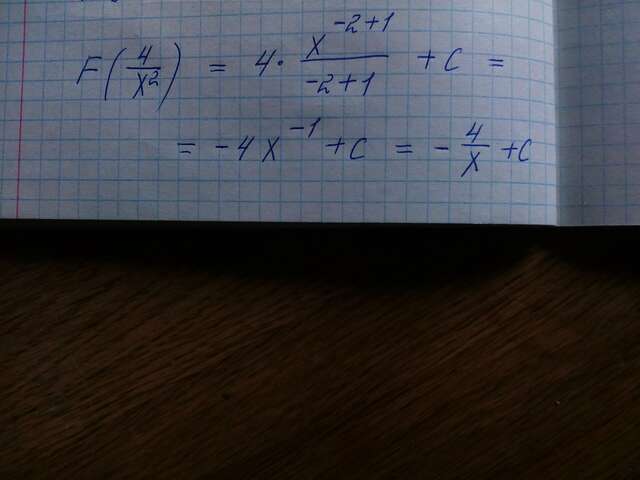 F(4/x²) = 4 · x^(-2+1)/(-2+1) + C =
= -4x^(-1) + C = -4/x + C